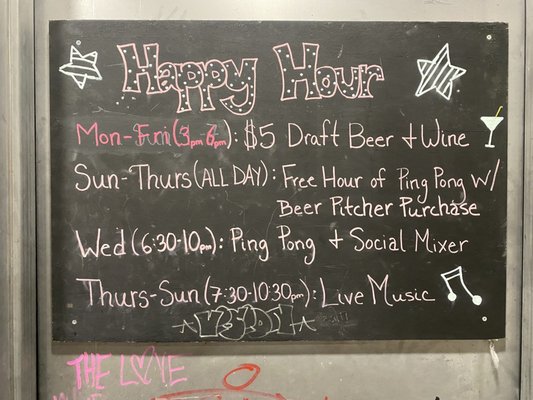 Happy Hour
Mon-Fri (3pm-6pm): $5 Draft Beer + Wine
Sun-Thurs (ALL DAY): Free Hour of Ping Pong W/
Beer Pitcher Purchase
Wed (6:30-10pm): Ping Pong + Social Mixer
Thurs-Sun (7:30-10:30pm): Live Music
THE LOVE